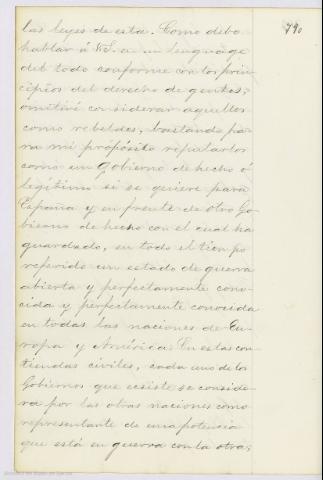 790
las leyes de esta. Como debo
hablar á V.S. en un lenguage
del todo conforme con los prin-
cipios del derecho de gentes,
omitiré considerar aquellos
como rebeldes, bastando pa-
ra mi propósito reputarlos
como un Gobierno de hecho ó
legítimo si se quiere para
España y en frente de otro Go-
bierno de hecho con el cual ha
guardado, en todo el tiempo
referido un estado de guerra
abierta y perfectamente cono-
cida y perfectamente conocida
en todas las naciones de Eu-
ropa y América. En estas con-
tiendas civiles, cada uno de los
Gobiernos que ecsiste se conside-
ra por las otras naciones como
representante de una potencia
que está en guerra con la otra;